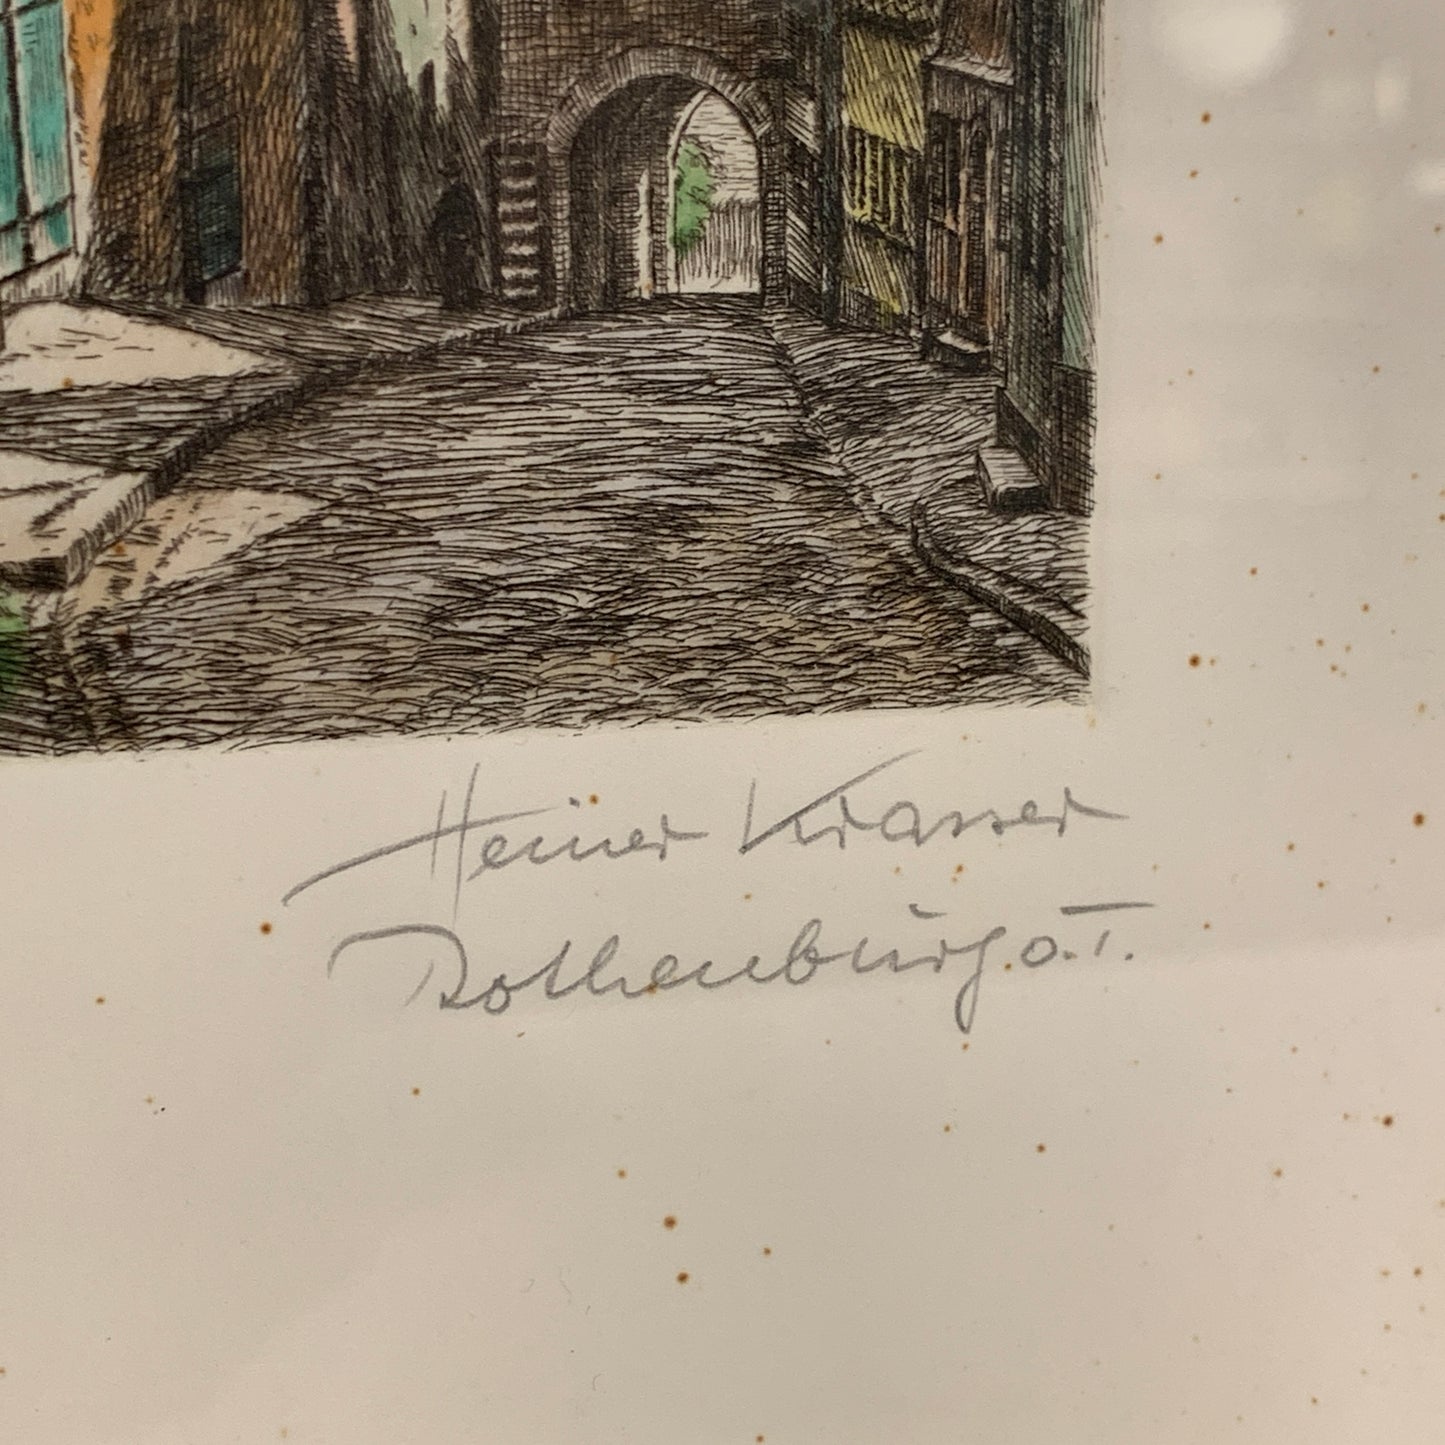 Heiner Krasser
Rothenburg o.T.